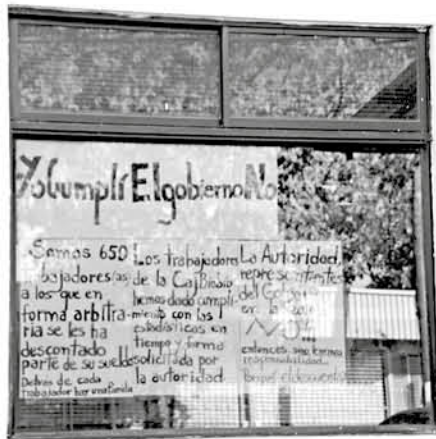 Yo Cumplí El gobierno No
Somos 650
trabajadores/as
a los que en
forma arbitra-
ria se les ha
descontado
parte de su sueldo
Detras de cada
trabajador hay una familia
Los trabajadores
de la Caj Biobio
hemos dado cumpli-
miento con las
estadísticas en
tiempo y forma
solicitada por
la autoridad
La Autoridad,
representante
del
en la
NO...
entonces
responsabilidad